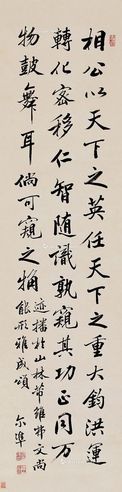 相公以天下之英任天下之重大钧洪運
轉化密移仁智随識孰窺其功正同万
物鼓舞耳倘可窺之
迹播於山林带雖弗文尚
能形雅成頌
尔準